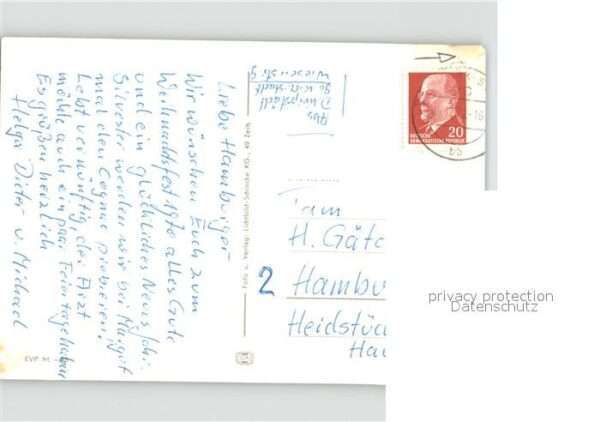 Liebe Hamburger
Wir wünschen Euch zum
Weihnachtsfest 1970 alles Gute
und ein glückliches Neues Jahr.
Silvester werden wir bei Margot
mal den Cognac probieren.
Lebt vernünftig, der Arzt
möchte auch ein paar Feiertage haben
Es grüßen herzlich
Helga Dieter u. Michael
Abs
Foto u. Verlag
49 Zeitz
EVP M
20
DEUTSCHE
DEMOKRATISCHE REPUBLIK
Fam
H. Gäte
2 Hambu
Heidstüc
Hau
privacy protection
Datenschutz